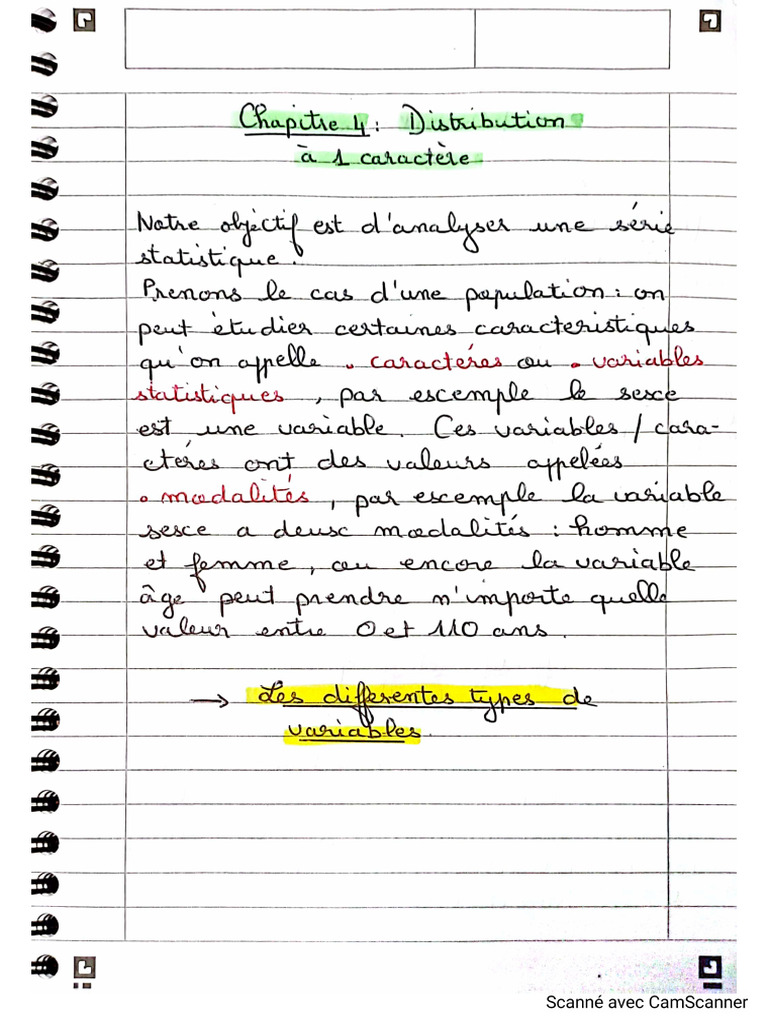 Chapitre 4 : Distribution
à 1 caractère
Notre objectif est d'analyser une série
statistique.
Prenons le cas d'une population : on
peut étudier certaines caracteristiques
qu'on appelle . caractéres ou . variables
statistiques, par exemple le sexe
est une variable. Ces variables / cara-
ctéres ont des valeurs appelées
. modalités, par exemple la variable
sexe a deux modalités : homme
et femme, ou encore la variable
âge peut prendre n'importe quelle
valeur entre 0 et 110 ans.
→ Les differentes types de
variables.
Scanné avec CamScanner